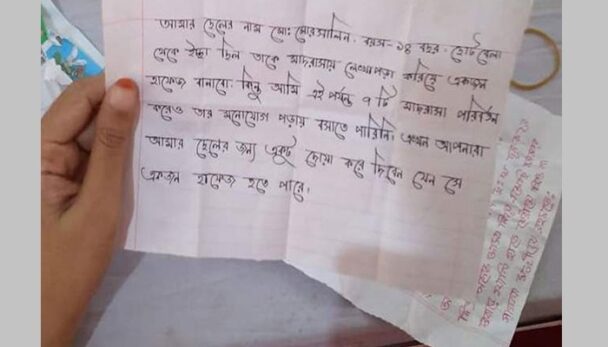 আমার ছেলের নাম মোঃ মোরসালিন। বয়স-১৪ বছর। ছোটবেলা
থেকে ইচ্ছা ছিল তাকে মাদরাসায় লেখাপড়া করিয়ে একজন
হাফেজ বানাবো। কিন্তু আমি এই পর্যন্ত ৭ টি মাদরাসা পরিবর্তন
করেও তার মনোযোগ পড়ায় বসাতে পারিনি। এখন আপনারা
আমার ছেলের জন্য একটু দোয়া করে দিবেন যেন সে
একজন হাফেজ হতে পারে।